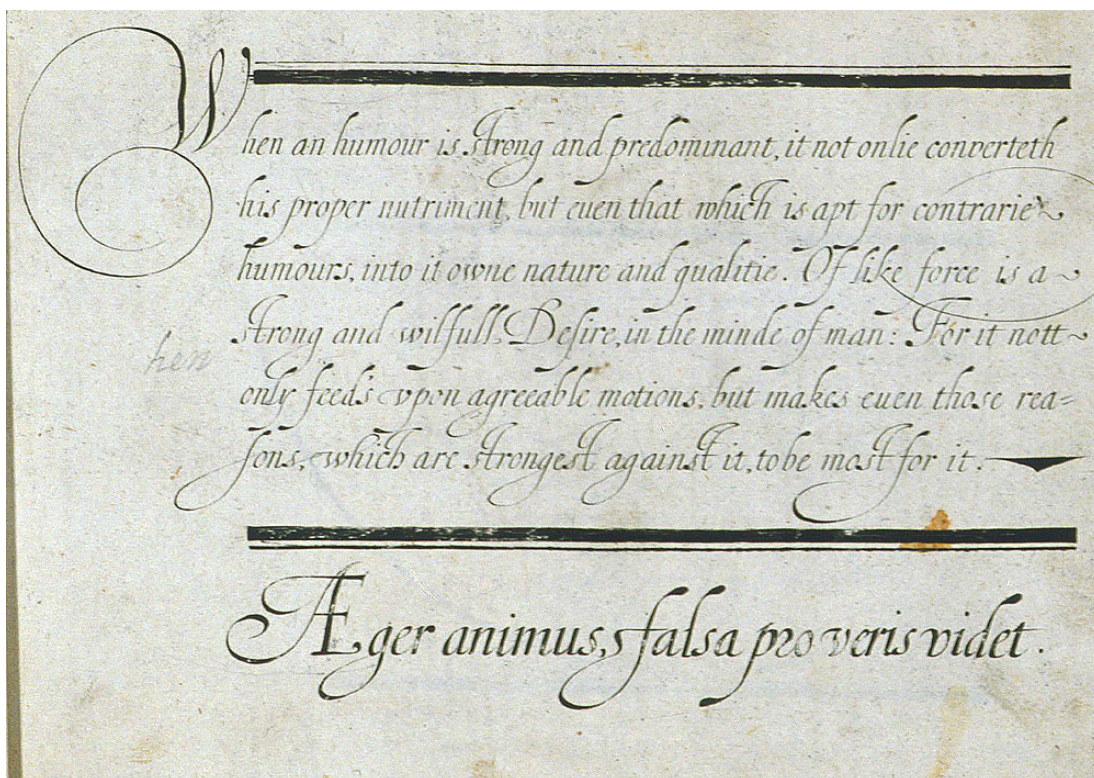 When an humour is strong and predominant, it not onlie converteth
his proper nutriment, but euen that which is apt for contrarie
humours, into it owne nature and qualitie. Of like force is a
strong and wilfull Desire, in the minde of man: For it nott
only feeds vpon agreeable motions, but makes euen those rea=
sons, which are strongest against it, to be most for it.
hen
Æger animus, falsa pro veris videt.